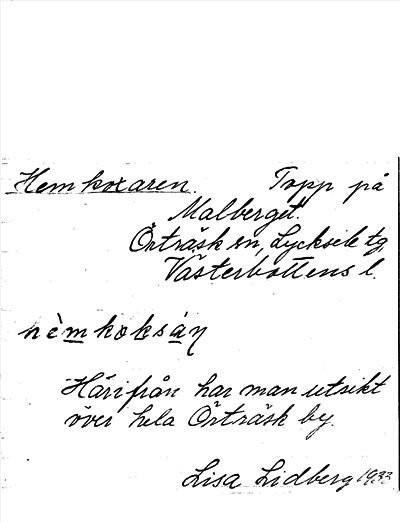 Hemkoxaren. Topp på
Malberget.
Örträsk sn, Lycksele tg
Västerbottens l.
Härifrån har man utsikt
över hela Örträsk by.
Lisa Lidberg 1933